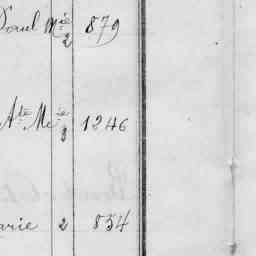 Mie 2 879
Ate Mie 3 1246
arie 2 834